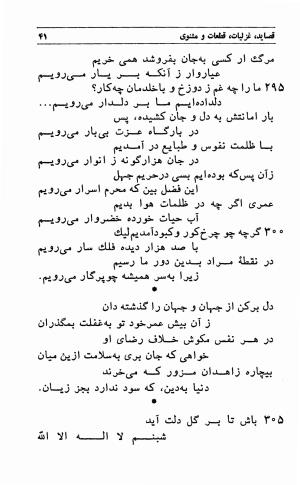 قصاید، غزلیات، قطعات و مثنوی ۴۱
مرگ ار کسی به‌جان بفروشد همی خریم
عیاروار ز آنکه بر یار می‌رویم
۲۹۵ ما را چه غم ز دوزخ و باخلدمان چه‌کار؟
دلداده‌ایم ما بر دلدار می‌رویم...
بار امانتش به دل و جان کشیده، پس
در بارگاه عزت بی‌بار می‌رویم
با ظلمت نفوس و طبایع در آمدیم
در جان هزارگونه ز انوار می‌رویم
زآن پس‌که بوده‌ایم بسی درحریم جهل
این فضل بین که محرم اسرار می‌رویم
عمری اگر چه در ظلمات هوا بدیم
آب حیات خورده خضروار می‌رویم
۳۰۰ گرچه چو چرخ‌کور وکبودآمدیم‌لیك
با صد هزار دیده فلك سار می‌رویم
در نقطهٔ مراد بدین دور ما رسیم
زیرا به‌سر همیشه چوپرگار می‌رویم.
*
دل برکن از جهان و جهان را گذشته دان
ز آن بیش عمرخود تو به‌غفلت بمگذران
در هر نفس مکوش خلاف رضای او
خواهی که جان بری به‌سلامت ازین میان
بیچاره زاهدان مزور که می‌خرند
دنیا به‌دین، که سود ندارد بجز زیان.
*
۳۰۵ باش تا بر گل دلت آید
شبنم لا الـه الا الله